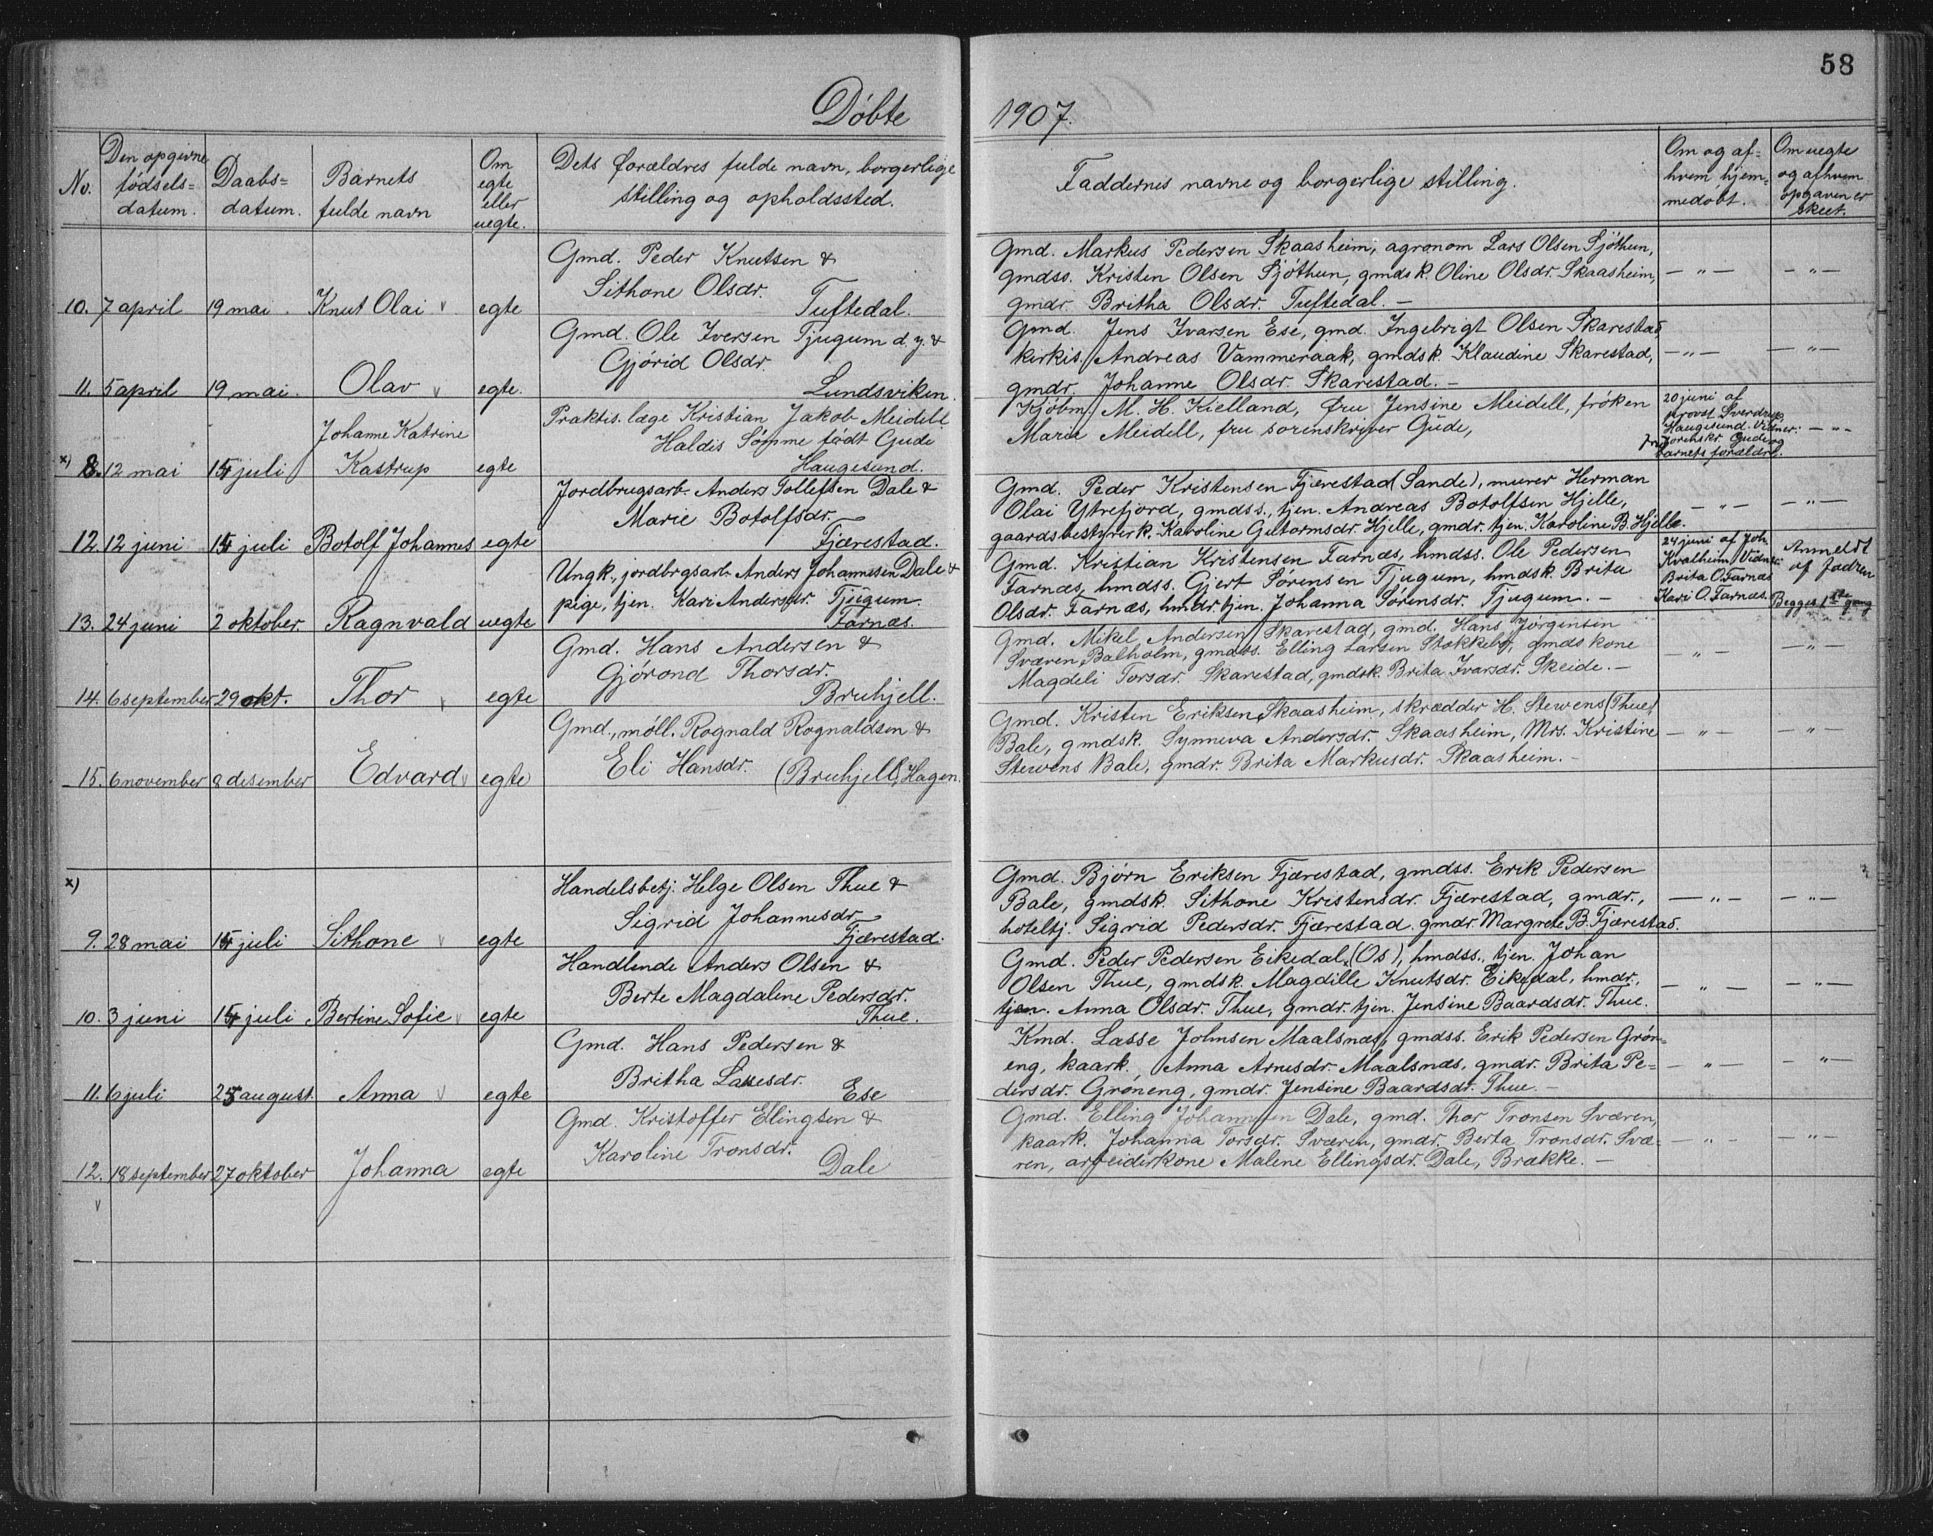 58
Döbte 1907.
No.
Den opgivne
födsels=
datum.
Daabs=
datum.
Barnets
fulde navn
Om
egte
eller
uegte.
Dets forældres fulde navn, borgerlige
stilling og opholdssted.
Faddernes navne og borgerlige stilling.
Om og af=
hvem hjem=
medöbt.
Om uegte
og afhvem
opgaven er
skeet.
10. 7 april 19 mai. Knut Olai egte
Gmd. Peder Knutsen &
Sithone Olsdr.
Tuftedal.
Gmd. Markus Pedersen Skaasheim, agronom Lars Olsen Sjöthun,
gmdss. Kristen Olsen Sjöthun, gmdsk. Oline Olsdr. Skaasheim,
gmdr. Britha Olsdr. Tuftedal. —
— „ — — „ —
11. 5 april 19 mai. Olav egte.
Gmd. Ole Iversen Tjugum d. y. &
Gjörid Olsdr.
Lundsviken.
Gmd. Jens Ivarsen Ese, gmd. Ingebrigt Olsen Skarestad,
kirkis. Andreas Vammeraak, gmdsk. Klaudine Skarestad,
gmdr. Johanne Olsdr. Skarestad. —
— „ — — „ —
x) 8. 12 mai 14 juli Johanne Katrine
Kastrup egte
Praktis. læge Kristian Jakob Meidell
Haldis Sömme födt Gude
Haugesund.
Kjöbm. M. H. Kielland, fru Jensine Meidell, fröken
Maria Meidell, fru sorenskriver Gude,
20 juni af
provst Sverdrup
Haugesund. Vidner:
Sorenskr. Gude og
barnets forældre.
— „ —
12. 12 juni 14 juli Botolf Johannes egte
Jordbrugsarb. Anders Tollefsen Dale &
Marie Botolfsdr.
Fjærestad.
Gmd. Peder Kristensen Fjærestad (Sande), murer Herman
Olai Ytrefjord, gmdss., tjen. Andreas Botolfsen Hjelle,
gaardsbestyrerk. Karoline Gutormsdr. Hjelle, gmdr. tjen. Karoline B. Hjelle.
— „ — — „ —
13. 24 juni 2 oktober. Ragnvald uegte
Ungk., jordbrgsarb. Anders Johannesen Dale &
pige, tjen. Kari Andersdr. Tjugum.
Farnæs.
Gmd. Kristian Kristensen Farnæs, hmdss. Ole Pedersen
Farnæs, hmdss. Gjert Sörensen Tjugum, hmdsk. Brita
Olsdr. Farnæs, hmdr. tjen. Johanna Sörensdr. Tjugum. —
24 juni af Joh.
Kvalheim. Vidner:
Brita O. Farnæs
Kari O. Farnæs.
Anmeldt
af fadren
Begges 1ste gang
14. 6 september 29 okt. Thor egte
Gmd. Hans Andersen &
Gjörond Thorsdr.
Bruhjell.
Gmd. Mikel Andersen Skarestad, gmd. Hans Jörgensen
Sværen, Balholm, gmdss. Elling Larsen Stokkebö, gmds kone
Magdeli Torsdr. Skarestad, gmdsk. Brita Ivarsdr. Skeide. —
— „ — — „ —
15. 6 november 8 desember Edvard egte
Gmd., möll. Rognald Rognaldsen &
Eli Hansdr. (Bruhjell), Hagen.
Gmd. Kristen Eriksen Skaasheim, skrædder H. Stewens (Thue)
Bale, gmdsk. Synneva Andersdr. Skaasheim, Mrs. Kristine
Stewens Bale, gmdr. Brita Markusdr. Skaasheim. —
— „ — — „ —
x)
9. 28 mai 14 juli Sithone egte
Handelsbetj. Helge Olsen Thue &
Sigrid Johannesdr.
Fjærestad.
Gmd. Björn Eriksen Fjærestad, gmdss. Erik Pedersen
Bale, gmdsk. Sithone Kristensdr. Fjærestad, gmdr.,
hoteltj. Sigrid Pedersdr. Fjærestad. gmdr. Margrete B. Fjærestad.
— „ — — „ —
10. 3 juni 14 juli Bertine Sofie egte
Handlende Anders Olsen &
Berte Magdalene Pedersdr.
Thue.
Gmd. Peder Pedersen Eikedal (Os), hmdss. tjen. Johan
Olsen Thue, gmdsk. Magdille Knutsdr. Eikedal, hmdr.,
tjen. Anna Olsdr. Thue, gmdr. tjen. Jensine Baardsdr. Thue.
— „ — — „ —
11. 6 juli 25 august. Anna egte
Gmd. Hans Pedersen &
Britha Lassesdr.
Ese
Kmd. Lasse Johnsen Maalsnæs, gmdss. Erik Pedersen Grön=
eng, kaark. Anna Arnesdr. Maalsnæs, gmdr. Brita Pe=
dersdr. Gröneng, gmdr. Jensine Baardsdr. Thue. —
— „ — — „ —
12. 18 september 27 oktober Johanna egte
Gmd. Kristoffer Ellingsen &
Karoline Tronsdr.
Dale
Gmd. Elling Johannesen Dale, gmd. Thor Tronsen Sværen,
kaark. Johanna Torsdr. Sværen, gmdr. Berta Tronsdr. Svæ=
ren, arbeiderkone Malene Ellingsdr. Dale, Brække. —
— „ — — „ —